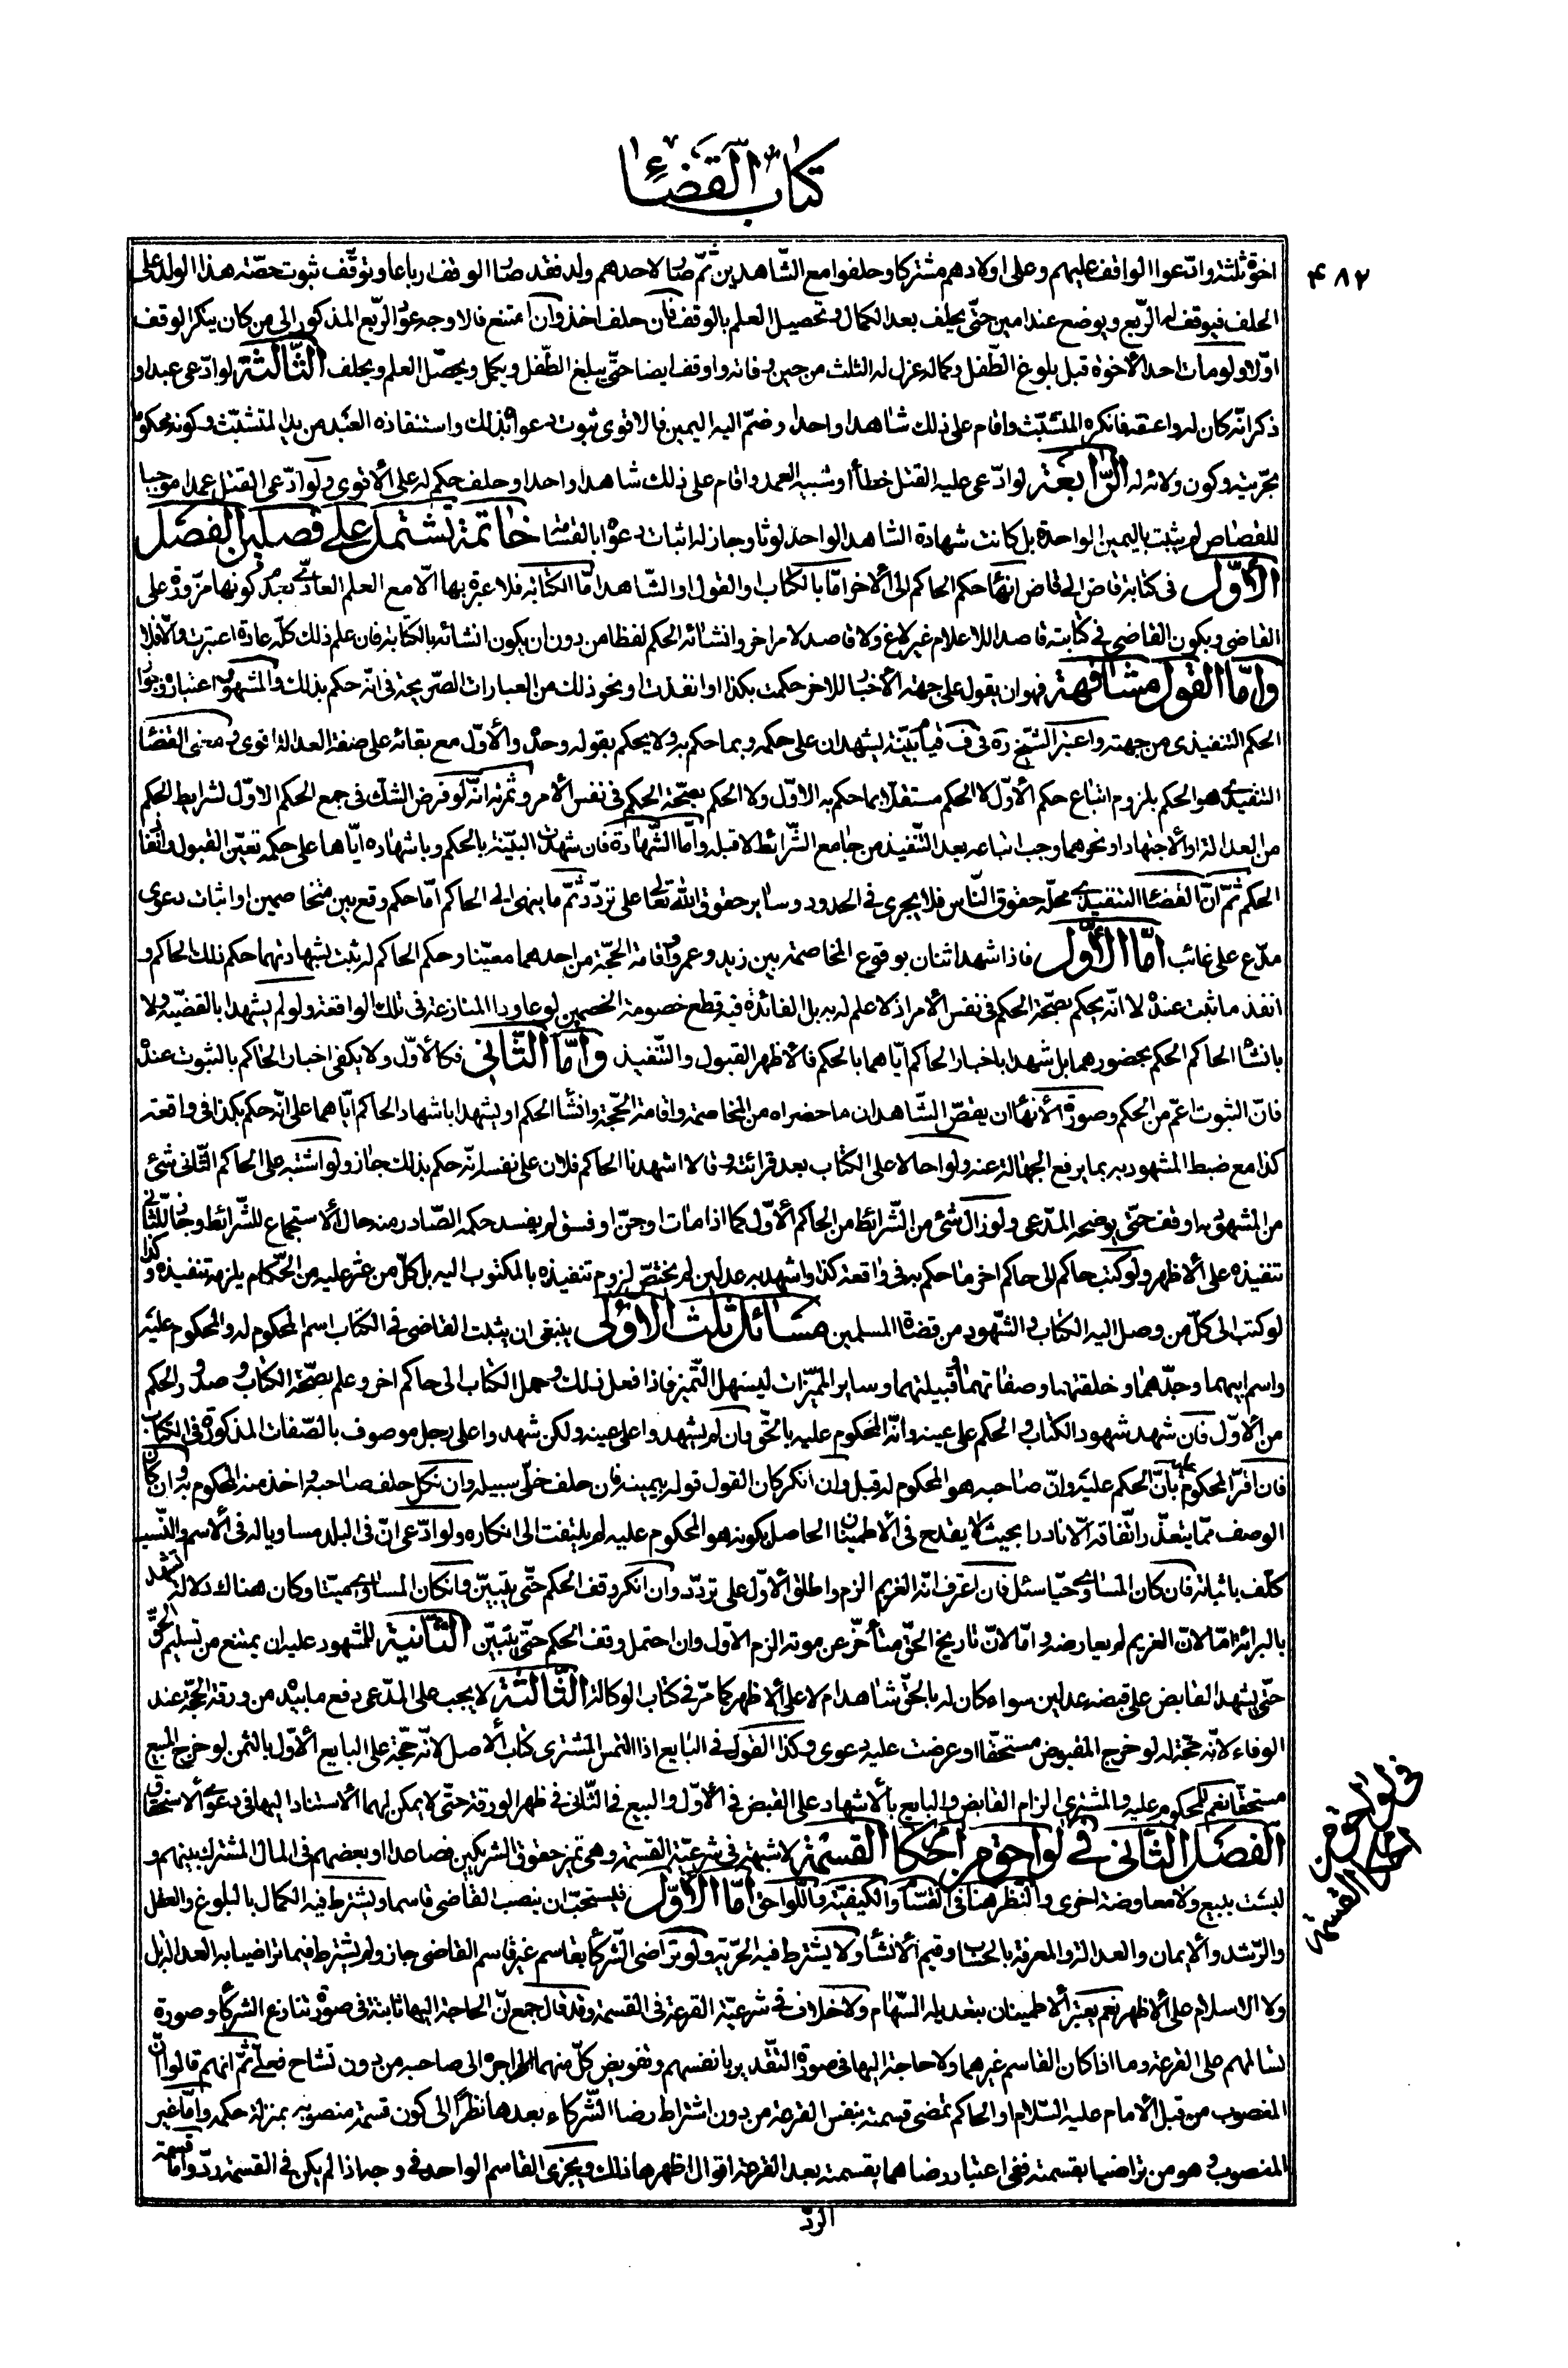 كتاب القضاء
۴۸۲
اخوة ثلثة وادّعوا الوقف عليهم وعلى اولادهم مشتركا وحلفوا مع الشّاهد ين ثمّ صار لاحدهم ولد فقد صار الوقف ارباعا وتوقّف ثبوت حصّته هذا الولد على
الحلف فيوقف له الربع ويوضع عند امين حتّى يحلف بعد الكمال وتحصيل العلم بالوقف فان حلف اخذ وان امتنع فالاوجه عود الرّبع المذكور الى من كان ينكر الوقف
اوّلا ولو مات احد الأخوة قبل بلوغ الطّفل وكماله عزل له الثلث من حين وفاته واوقف ايضا حتّى يبلغ الطّفل ويكمل ويحصّل العلم ويحلف الثّالثة لو ادّعى عبدا و
ذكر انّه كان له واعتقه فانكره المتشبّث واقام على ذلك شاهدا واحدا وضمّ اليه اليمين فالاقوى ثبوت دعواه بذلك واستنقاذه العبد من يد المتشبّث وكونه محكوما
بحرّيته وكون ولائه له الرّابعة لو ادّعى عليه القتل خطأ او شبيه العمد واقام على ذلك شاهدا واحدا وحلف حكم له على الأقوى ولو ادّعى القتل عمدا موجبا
للقصاص لم يثبت باليمين الواحدة بل كانت شهادة الشاهد الواحد لوثا وجاز له اثبات دعواه بالقسامة خاتمة تشتمل على فصلين الفصل
الأوّل فى كتابة قاض الى قاض انهاء حكم الحاكم الى الأخر امّا بالكتاب او القول او الشّاهد امّا الكتابة فلا عبرة بها الّا مع العلم العادّى بعدم كونها مزوّرة على
القاضى وبكون القاضى فى كتابته قاصدا للاعلام غير لاغ ولا قاصد لامر اخر وانشائه الحكم لفظا من دون ان يكون انشائه بالكتابة فان علم ذلك كلّه عادة اعتبرت والّا فلا
وامّا القول مشافهة فهو ان يقول على جهة الأخبار للاخر حكمت بكذا او انفذت او نحو ذلك من العبارات الصّريحة فى انّه حكم بذلك والمشهور اعتباره فى جواز
الحكم التنفيذى من جهته واعتبر الشّيخ ره فى ف قيام بيّنة يشهدان على حكمه وبما حكم به ولا يحكم بقوله وحده والأوّل مع بقائه على صفة العدالة اقوى ومعنى القضاء
التنفيذى هو الحكم بلزوم اتباع حكم الأوّل لا الحكم مستقلّا بما حكم به الاوّل ولا الحكم بصحّة الحكم فى نفس الأمر وثمرته انّه لو فرض الشك فى جمع الحكم الاوّل لشرايط الحكم
من العدالة او الأجتهاد او نحوهما وجب اتباعه بعد التّنفيذ من جامع الشّرائط لا قبله وامّا الشّهادة فان شهدت البيّنة بالحكم وباشهاده ايّاها على حكمه تعيّن القبول وانفاذ
الحكم ثمّ انّ القضاء التنفيذى محلّه حقوق النّاس فلا يجرى فى الحدود وساير حقوق الله تعالى على تردّد ثمّ ما ينهى الى الحاكم امّا حكم وقع بين متخاصمين او اثبات دعوى
مدّع على غائب امّا الأوّل فاذا شهد اثنان بوقوع المخاصمة بين زيد وعمرو واقامة الحجّة من احدهما معيّنا وحكم الحاكم له ثبت بشهادتهما حكم ذلك الحاكم و
انفذ ما ثبت عنده لا انّه يحكم بصحّة الحكم فى نفس الأمر اذ لا علم له به بل الفائدة فيه قطع خصومة الخصمين لو عاودا المنازعة فى تلك الواقعة ولو لم يشهدا بالقضيّة ولا
بانشاء الحاكم الحكم بحضورهما بل شهدا باخبار الحاكم ايّاهما بالحكم فالأظهر القبول والتّنفيذ وامّا الثّانى فكالأوّل ولا يكفى اخبار الحاكم بالثبوت عنده
فانّ الثبوت اعمّ من الحكم وصورة الأنهاء ان يقصّ الشّاهدان ما حضراه من المخاصمة واقامة الحجّة وانشاء الحكم او يشهدا باشهاد الحاكم ايّاهما على انّه حكم بكذا فى واقعة
كذا مع ضبط المشهود به بما يرفع الجهالة عنه ولو احالا على الكتاب بعد قرائته وقالا اشهدنا الحاكم فلان على نفسه انّه حكم بذلك جاز ولو اشتبه على الحاكم الثّانى شئ
من المشهود به اوقف حتّى يوضحه المدّعى ولو زال شئ من الشّرائط من الحاكم الأوّل كما اذا مات او جنّ او فسق لم يفسد حكمه الصّادر منه حال الأستجماع للشّرائط وجاز للثّانى
تنفيذه على الأظهر ولو كتب حاكم الى حاكم اخر ما حكم به فى واقعة كذا واشهد به عدلين لم يختصّ لزوم تنفيذه بالمكتوب اليه بل كلّ من عثر عليه من الحكّام يلزمه تنفيذه وكذا
لو كتب الى كلّ من وصل اليه الكتاب والشّهود من قضاة المسلمين مسائل ثلث الاولى ينبغى ان يثبت القاضى فى الكتاب اسم المحكوم له والمحكوم عليه
واسم ابيهما وجدّهما وخلقتهما وصفاتهما وقبيلتهما وساير المميّزات ليسهل التّميز فاذا فعل ذلك وحمل الكتاب الى حاكم اخر وعلم بصحّة الكتاب وصدور الحكم
من الأوّل فان شهد شهود الكتاب والحكم على عينه وانّه المحكوم عليه بالحقّ وان لم يشهدوا على عينه ولكن شهدوا على رجل موصوف بالصّفات المذكورة فى الكتاب
فان اقرّ المحكوم عليه بانّ الحكم عليه وانّ صاحبه هو المحكوم له قبل وان انكر كان القول قوله بيمينه فان حلف خلّى سبيله وان نكل حلف صاحبه واخذ منه المحكوم به وان كان
الوصف ممّا يتعذّر اتّفاقه الّا نادرا بحيث لا يقدح فى الأطمينان الحاصل بكونه هو المحكوم عليه لم يلتفت الى انكاره ولو ادّعى انّ فى البلد مساويا له فى الأسم والنّسب
كلّف باثباته فان كان المساوى حيّا سئل فان اعترف انّه الغريم الزم واطلق الأوّل على تردّد وان انكر وقف الحكم حتّى يتبيّن وان كان المساوى ميتا وكان هناك دلالة تشهد
بالبرائة امّا لانّ الغريم لم يعاصره وامّا لانّ تاريخ الحقّ متأخّر عن موته الزم الاوّل وان احتمل وقف الحكم حتّى يتبيّن الثّانية للمشهود عليه ان يمتنع من تسليم الحقّ
حتّى يشهد القابض على قبضه عدلين سواء كان له بالحقّ شاهد ام لا على الأظهر كما مرّ فى كتاب الوكالة الثّالثة لا يجب على المدّعى دفع ما بيده من ورقة الحجّة عند
الوفاء لانّه حجّة له لو خرج المقبوض مستحقّا او عرضت عليه دعوى وكذا القول فى البايع اذا التمس المشترى كتاب الأصل لانّه حجّة على البايع الأوّل بالثمن لو خرج المبيع
مستحقّا نعم للمحكوم عليه والمشترى الزام القابض والبايع بالأشهاد على القبض فى الأوّل والبيع فى الثّانى فى ظهر الورقة حتّى لا يمكن لهما الأستناد اليها فى دعوى الأستحقاق
الفصل الثّانى فى لواحق من احكام القسمة لا شبهة فى شرعيّة القسمة وهى تميز حقوق الشريكين فصاعدا او بعضهم فى المال المشترك بينهم و
ليست ببيع ولا معاوضة اخرى والنّظر هنا فى القسّام والكيفيّة واللّواحق امّا الأوّل فيستحبّ ان ينصب القاضى قاسما ويشترط فيه الكمال بالبلوغ والعقل
والرّشد والأيمان والعدالة والمعرفة بالحساب وقيم الأشياء ولا يشترط فيه الحرّية ولو تراضى الشّركاء بقاسم غير قاسم القاضى جاز ولم يشترط فيما تراضيا به العدالة بل
ولا الاسلام على الأظهر نعم يعتبر الأطمينان بتعديله السّهام ولا خلاف فى شرعيّة القرعة فى القسمة وقد قال جمع انّ الحاجة اليها ثابتة فى صورة تنازع الشركاء وصورة
تسالمهم على القرعة وما اذا كان القاسم غيرهما ولا حاجة اليها فى صورة التّقدير بانفسهم وتفويض كلّ منهما الى صاحبه من دون تشاح فى محلّه ثمّ انهم قالوا انّ
المنصوب من قبل الأمام عليه السّلام او الحاكم تمضى قسمته بنفس القرعة من دون اشتراط رضا الشّركاء بعدها نظرا الى كون قسمة منصوبه بمنزلة حكمه وامّا غير
المنصوب وهو من تراضيا بقسمته ففى اعتبار رضاهما بقسمته بعد القرعة اقوال اظهرها ذلك ويجزى القاسم الواحد فى وجه اذا لم يكن فى القسمة ردّ وامّا قسمة
الردّ
فى لواحق من
احكام القسمة